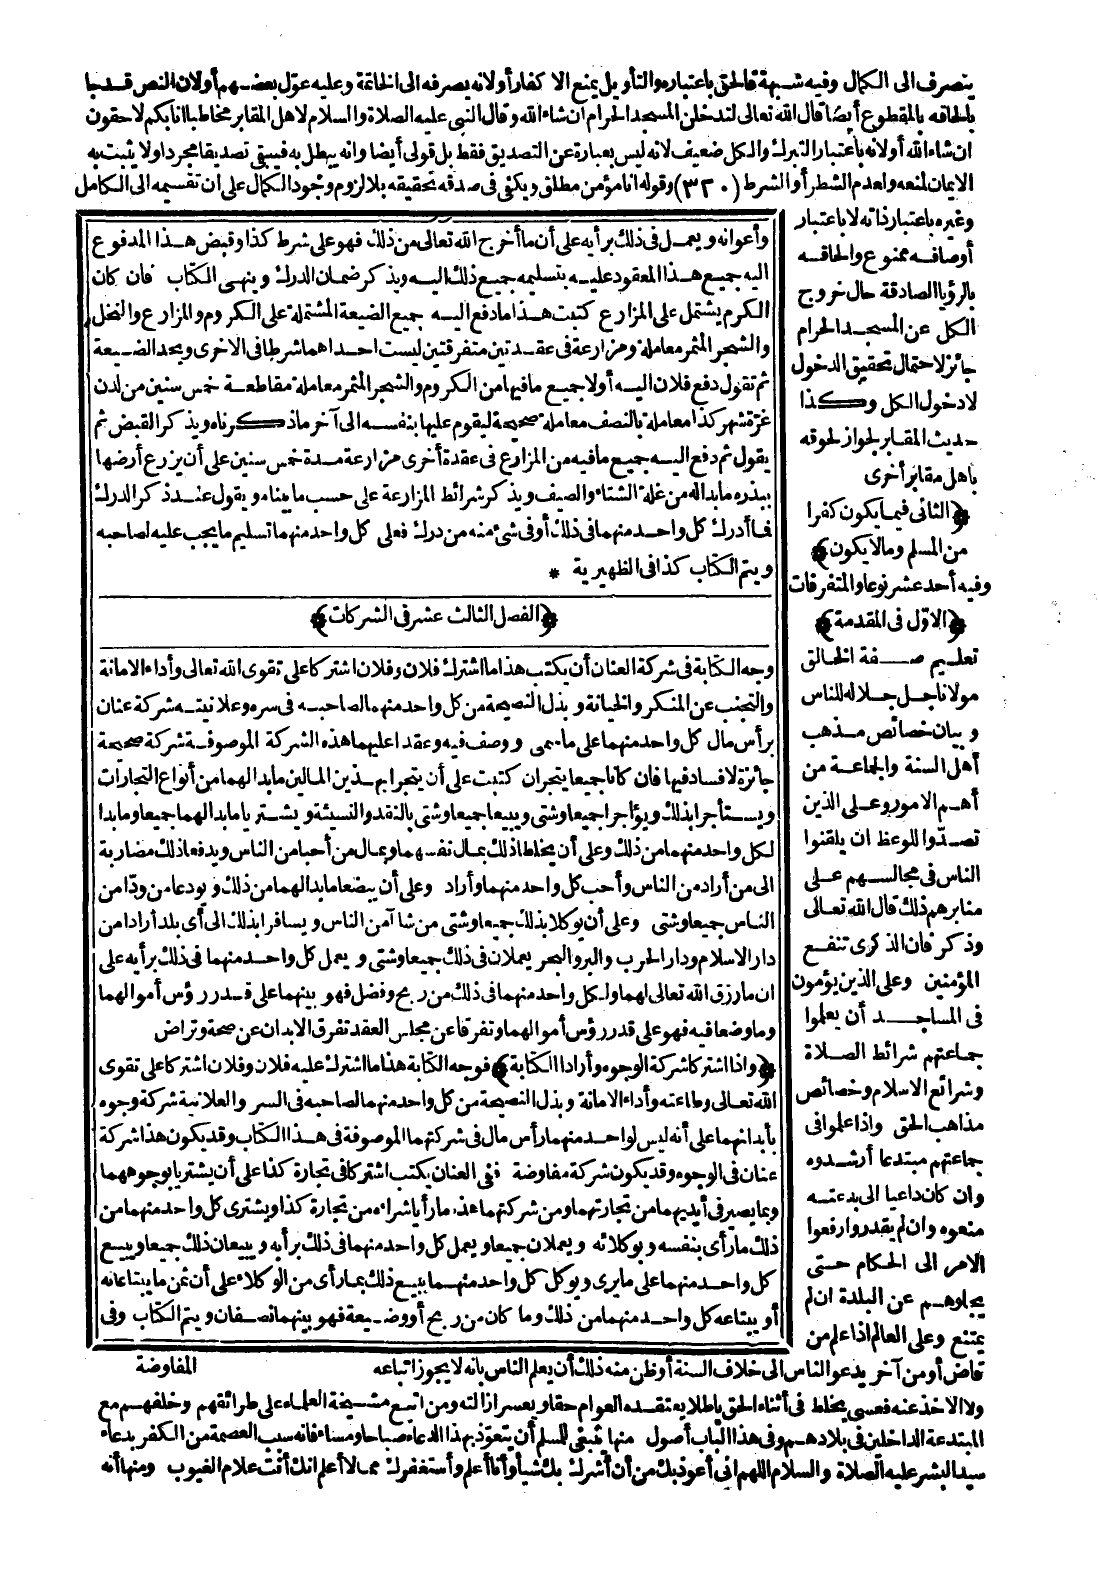 ينصرف الى الكمال وفيه شبهة فالحق باعتباره والتأويل يمنع الاكفار أولانه يصرفه الى الخاتمة وعليه عوّل بعضهم أولان النص قد جا
بالحاقه بالمقطوع أيضا قال الله تعالى لتدخلن المسجد الحرام ان شاء الله وقال النبى عليه الصلاة والسلام لاهل المقابر مخاطبا انا بكم لاحقون
ان شاء الله أولانه باعتبار التبرك والكل ضعيف لانه ليس بعبارة عن التصديق فقط بل قولى أيضا وانه يبطل به فيبقى تصديقا مجردا ولا يثبت به
الايمان لمنعه ولعدم الشطر أو الشرط (٣٢٠) وقوله انا مؤمن مطلق ويكفى فى صدقه تحقيقه بلا لزوم وجود الكمال على ان تقسيمه الى الكامل
وغيره باعتبار ذاته لا باعتبار
أوصافه ممنوع والحاقه
بالرؤيا الصادقة حال خروج
الكل عن المسجد الحرام
جائز لاحتمال تحقيق الدخول
لا دخول الكل وكذا
حديث المقابر لجواز لحوقه
باهل مقابر أخرى
﴿الثانى فيما يكون كفرا
من المسلم وما لا يكون﴾
وفيه أحد عشر نوعا والمتفرقات
﴿الاوّل فى المقدمة﴾
تعليم صفة الخالق
مولانا جل جلاله للناس
وبيان خصائص مذهب
أهل السنة والجماعة من
أهم الامور وعلى الذين
تصدّوا للوعظ ان يلقنوا
الناس فى مجالسهم على
منابرهم ذلك قال الله تعالى
وذكر فان الذكرى تنفع
المؤمنين وعلى الذين يؤمون
فى المساجد أن يعلموا
جماعتهم شرائط الصلاة
وشرائع الاسلام وخصائص
مذاهب الحق واذا علموا فى
جماعتهم مبتدعا أرشدوه
وان كان داعيا الى بدعته
منعوه وان لم يقدروا رفعوا
الامر الى الحكام حتى
يجلوهم عن البلدة ان لم
يمتنع وعلى العالم اذا علم من
وأعوانه ويعمل فى ذلك برأيه على أن ما أخرج الله تعالى من ذلك فهو على شرط كذا وقبض هذا المدفوع
اليه جميع هذا المعقود عليه بتسليمه جميع ذلك اليه ويذكر ضمان الدرك وينهى الكتاب فان كان
الكرم يشتمل على المزارع كتبت هذا ما دفع اليه جميع الضيعة المشتملة على الكروم والمزارع والنخل
والشجر المثمر معاملة ومزارعة فى عقدتين متفرقتين ليست احداهما شرطا فى الاخرى ويحد الضيعة
ثم تقول دفع فلان اليه أولا جميع ما فيها من الكروم والشجر المثمر معاملة مقاطعة خمس سنين من لدن
غرّة شهر كذا معاملة بالنصف معاملة صحيحة ليقوم عليها بنفسه الى آخر ماذكرناه ويذكر القبض ثم
يقول ثم دفع اليه جميع ما فيه من المزارع فى عقدة أخرى مزارعة مدة خمس سنين على أن يزرع أرضها
ببذره ما بدا له من غلة الشتاء والصيف ويذكر شرائط المزارعة على حسب ما بيناه ويقول عند ذكر الدرك
فما أدرك كل واحد منهما فى ذلك أو فى شئ منه من درك فعلى كل واحد منهما تسليم ما يجب عليه لصاحبه
ويتم الكتاب كذا فى الظهيرية *
﴿الفصل الثالث عشر فى الشركات﴾
وجه الكتابة فى شركة العنان أن يكتب هذا ما اشترك فلان وفلان اشتركا على تقوى الله تعالى وأداء الامانة
والتجنب عن المنكر والخيانة وبذل النصيحة من كل واحد منهما لصاحبه فى سره وعلانيته شركة عنان
برأس مال كل واحد منهما على ما سمى ووصف فيه وعقدا عليهما هذه الشركة الموصوفة شركة صحيحة
جائزة لا فساد فيها فان كانا جميعا يتجران كتبت على أن يتجرا بهذين المالين ما بدا لهما من أنواع التجارات
ويستأجرا بذلك ويؤاجرا جميعا وشتى ويبيعا جميعا وشتى بالنقد والنسيئة ويشتريا ما بدا لهما جميعا وما بدا
لكل واحد منهما من ذلك وعلى أن يخلطا ذلك بمال نفسهما وبمال من أحبا من الناس ويدفعا ذلك مضاربة
الى من أراد من الناس وأحب كل واحد منهما وأراد وعلى أن يبضعا ما بدا لهما من ذلك ويودعا من ودّا من
الناس جميعا وشتى وعلى أن يوكلا بذلك جميعا وشتى من شا آ من الناس ويسافرا بذلك الى أى بلد أرادا من
دار الاسلام ودار الحرب والبر والبحر يعملان فى ذلك جميعا وشتى ويعمل كل واحد منهما فى ذلك برأيه على
ان ما رزق الله تعالى لهما ولكل واحد منهما فى ذلك من ربح وفضل فهو بينهما على قدر رؤس أموالهما
وما وضعا فيه فهو على قدر رؤس أموالهما وتفرقا عن مجلس العقد تفرق الابدان عن صحة وتراض
﴿واذا اشتركا شركة الوجوه وأرادا الكتابة﴾ فوجه الكتابة هذا ما اشترك عليه فلان وفلان اشتركا على تقوى
الله تعالى وطاعته وأداء الامانة وبذل النصيحة من كل واحد منهما لصاحبه فى السر والعلانية شركة وجوه
بأبدانهما على أنه ليس لواحد منهما رأس مال فى شركتهما الموصوفة فى هذا الكتاب وقد يكون هذا شركة
عنان فى الوجوه وقد يكون شركة مفاوضة ففى العنان يكتب اشتركا فى تجارة كذا على أن يشتريا بوجوههما
وبما يصير فى أيديهما من تجارتهما ومن شركتهما هذه ما رأيا شراءه من تجارة كذا ويشترى كل واحد منهما من
ذلك ما رأى بنفسه وبوكلائه ويعملان جميعا ويعمل كل واحد منهما فى ذلك برأيه ويبيعان ذلك جميعا ويبيع
كل واحد منهما على ما يرى ويوكل كل واحد منهما ببيع ذلك بما رأى من الوكلاء على أن ثمن ما يبتاعانه
أو يبتاعه كل واحد منهما من ذلك وما كان من ربح أو وضيعة فهو بينهما نصفان ويتم الكتاب وفى
المفاوضة
قاض أو من آخر يدعو الناس الى خلاف السنة أو ظن منه ذلك أن يعلم الناس بانه لا يجوز اتباعه
ولا الاخذ عنه فعسى يخلط فى أثناء الحق باطلا يعتقده العوام حقا ويعسر ازالته ومن اتبع مشيخة العلماء على طرائقهم وخلفهم مع
المبتدعة الداخلين فى بلادهم وفى هذا الباب أصول منها ينبغى للمسلم أن يتعوّذ بهذا الدعاء صباحا ومساء فانه سبب العصمة من الكفر بدعاء
سيد البشر عليه الصلاة والسلام اللهم انى أعوذ بك من أن أشرك بك شيأ وأنا أعلم وأستغفرك مما لا أعلم انك أنت علام الغيوب ومنها أنه